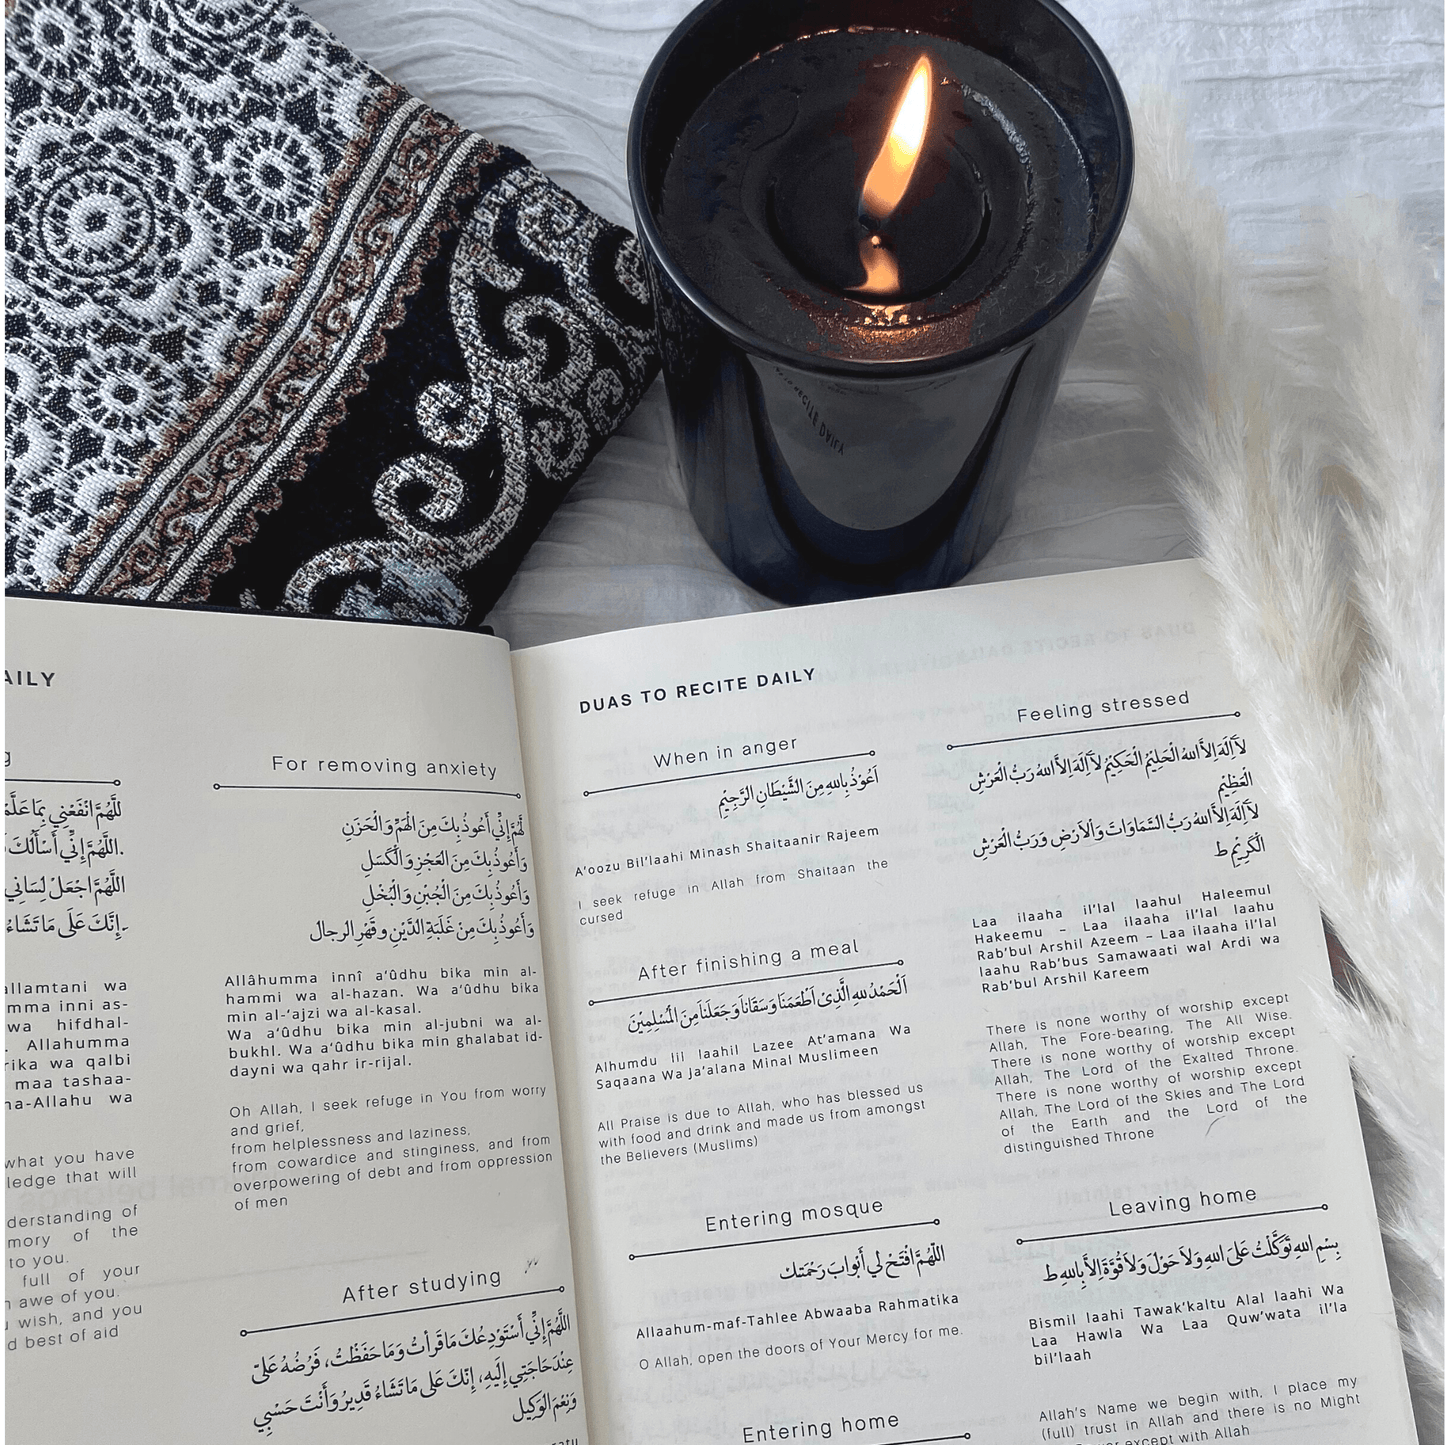 AILY
للَّهُمَّ انْفَعْنِي بِمَا عَلَّمْ
اللَّهُمَّ إِنِّي أَسْأَلُكَ
اللَّهُمَّ اجْعَلْ لِسَانِي
إِنَّكَ عَلَى مَا تَشَاءُ
allamtani wa
mma inni as-
wa hifdhal-
. Allahumma
rika wa qalbi
maa tashaa-
na-Allahu wa
what you have
ledge that will
derstanding of
mory of the
to you.
full of your
n awe of you.
u wish, and you
d best of aid
For removing anxiety
لَّهُمَّ إِنِّي أَعُوذُ بِكَ مِنَ الْهَمِّ وَالْحَزَنِ
وَأَعُوذُ بِكَ مِنَ الْعَجْزِ وَالْكَسَلِ
وَأَعُوذُ بِكَ مِنَ الْجُبْنِ وَالْبُخْلِ
وَأَعُوذُ بِكَ مِنْ غَلَبَةِ الدَّيْنِ وقَهْرِ الرجال
Allâhumma innî a‘ûdhu bika min al-
hammi wa al-hazan. Wa a‘ûdhu bika
min al-‘ajzi wa al-kasal.
Wa a‘ûdhu bika min al-jubni wa al-
bukhl. Wa a‘ûdhu bika min ghalabat id-
dayni wa qahr ir-rijal.
Oh Allah, I seek refuge in You from worry
and grief,
from helplessness and laziness,
from cowardice and stinginess, and from
overpowering of debt and from oppression
of men
After studying
اللَّهُمَّ إِنِّي أَسْتَوْدِعُكَ مَا قَرَأْتُ وَمَا حَفَظْتُ، فَرُدُّهُ عَلَىّ
عِنْدَ حَاجَتِي إِلَيهِ، إِنَّكَ عَلى مَا تَشَاءُ قَدِيرُ وَأَنْتَ حَسْبِي
وَنِعْمَ الوَكِيل
DUAS TO RECITE DAILY
When in anger
اَعُوْذُ بِاللهِ مِنَ الشَّيْطَانِ الرَّجِيْمِ
A’oozu Bil’laahi Minash Shaitaanir Rajeem
I seek refuge in Allah from Shaitaan the
cursed
After finishing a meal
اَلْحَمْدُ للهِ الَّذِىْ اَطْعَمَنَا وَسَقَانَا وَجَعَلَنَا مِنَ الْمُسْلِمِيْنَ
Alhumdu lil laahil Lazee At’amana Wa
Saqaana Wa Ja’alana Minal Muslimeen
All Praise is due to Allah, who has blessed us
with food and drink and made us from amongst
the Believers (Muslims)
Entering mosque
اللّهُمَّ افْتَحْ لي أَبْوابَ رَحْمَتكْ
Allaahum-maf-Tahlee Abwaaba Rahmatika
O Allah, open the doors of Your Mercy for me.
Entering home
Feeling stressed
لآ اِلَهَ اِلاَّ اللهُ الْحَلِيْمُ الْحَكِيْمُ لآ اِلَهَ اِلاَّ اللهُ رَبُّ الْعَرْشِ
الْعَظِيْمِ
لآ اِلَهَ اِلاَّ اللهُ رَبُّ السَّمَاوَاتَ وَالْاَرْضِ وَرَبُّ الْعَرْشِ
الْكَرِيْمِ ط
Laa ilaaha il’lal laahul Haleemul
Hakeemu – Laa ilaaha il’lal laahu
Rab’bul Arshil Azeem – Laa ilaaha il’lal
laahu Rab’bus Samawaati wal Ardi wa
Rab’bul Arshil Kareem
There is none worthy of worship except
Allah, The Fore-bearing, The All Wise.
There is none worthy of worship except
Allah, The Lord of the Exalted Throne.
There is none worthy of worship except
Allah, The Lord of the Skies and The Lord
of the Earth and the Lord of the
distinguished Throne
Leaving home
بِسْمِ اللهِ تَوَكَّلْتُ عَلىَ اللهِ وَلاَ حَوْلَ وَلاَ قُوَّةَ اِلاَّ بِاللهِ ط
Bismil laahi Tawak’kaltu Alal laahi Wa
Laa Hawla Wa Laa Quw’wata il’la
bil’laah
Allah’s Name we begin with, I place my
(full) trust in Allah and there is no Might
except with Allah